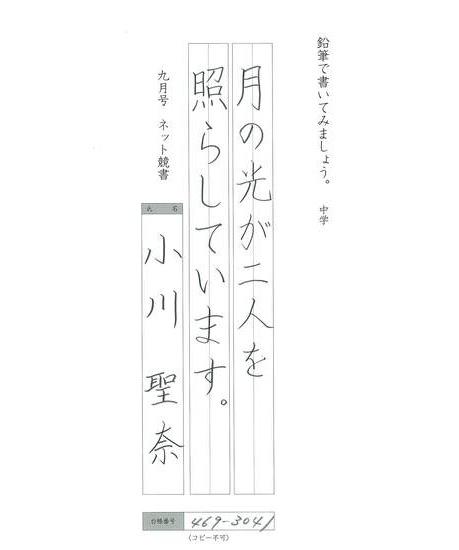 鉛筆で書いてみましょう。 中学
月の光が二人を
照らしています。
九月号 ネット競書
氏 名
小川 聖奈
台帳番号 469-3041
(コピー不可)